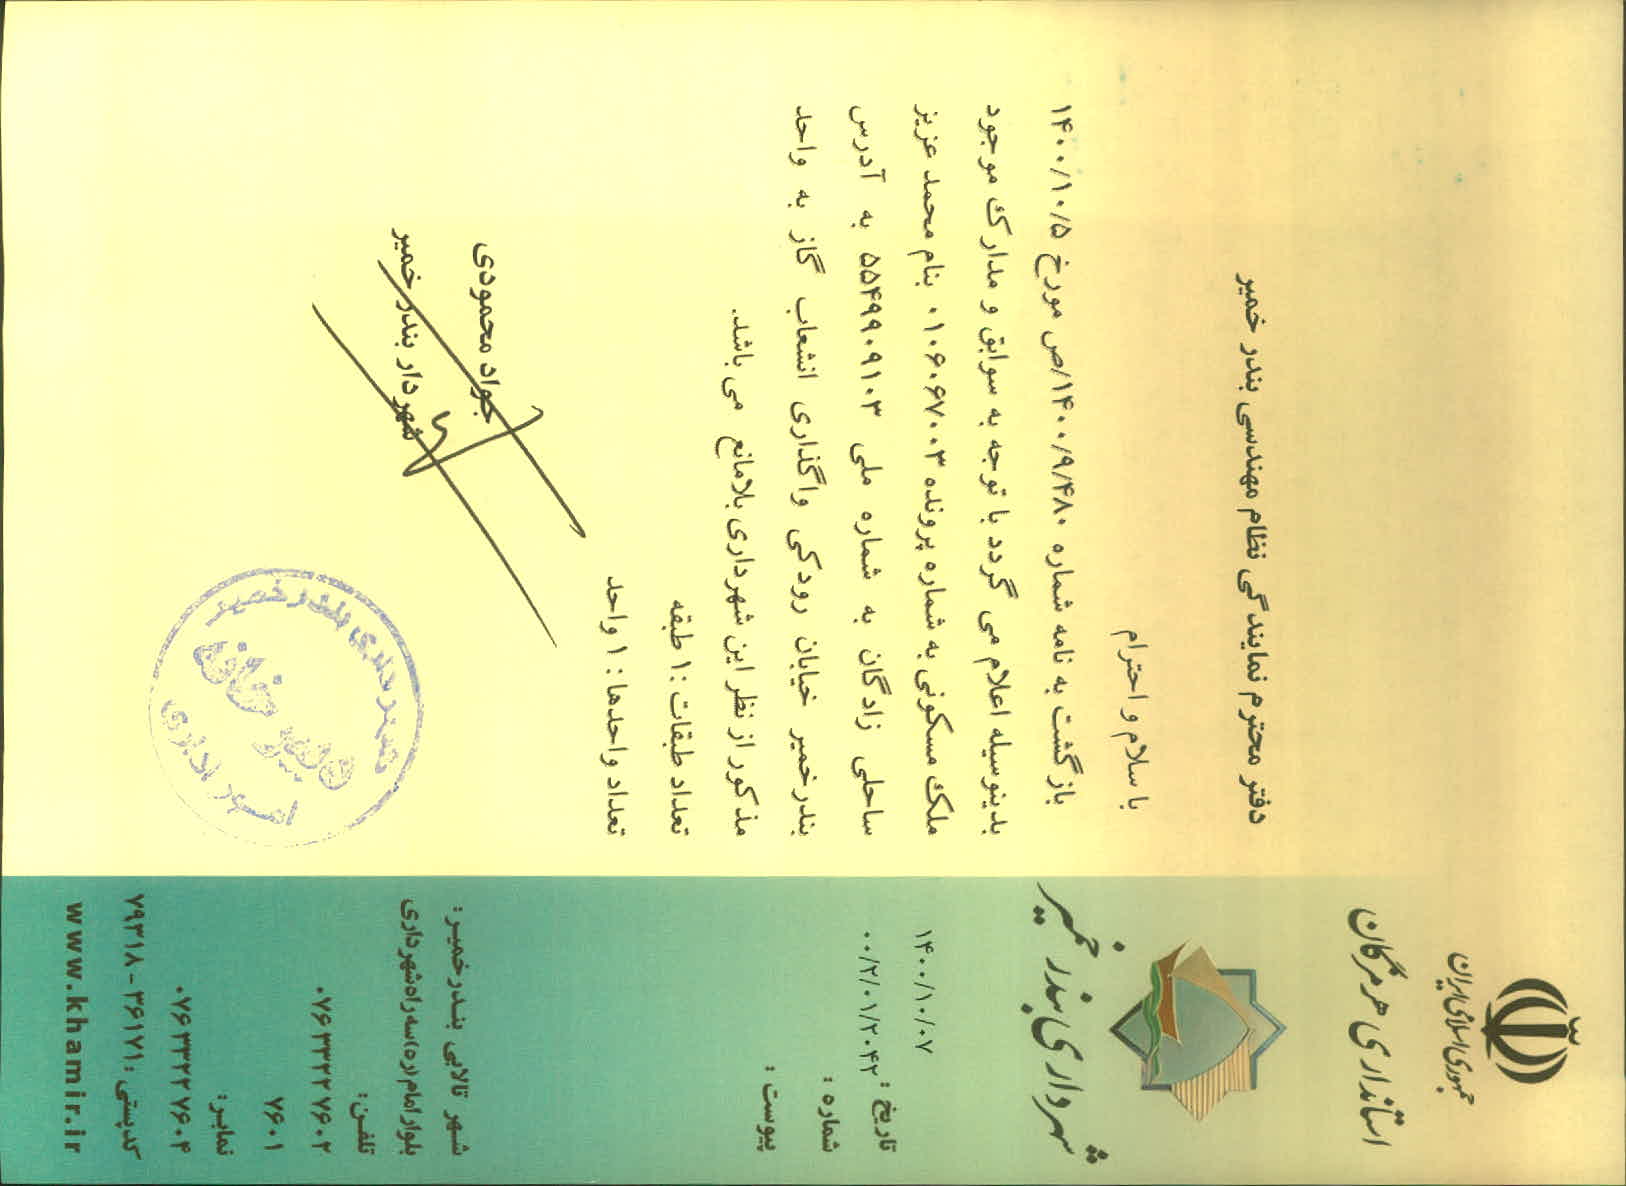 جمهوری اسلامی ایران
استانداری هرمزگان
شهرداری بندر خمیر
تاریخ : ۱۴۰۰/۱۰/۰۷
شماره : ۰۰/۲/۰۱/۲۰۴۲
پیوست :
دفتر محترم نمایندگی نظام مهندسی بندر خمیر
با سلام و احترام
بازگشت به نامه شماره ۱۴۰۰/۹/۴۸۰/ص مورخ ۱۴۰۰/۱۰/۵
بدینوسیله اعلام می گردد با توجه به سوابق و مدارک موجود
ملک مسکونی به شماره پرونده ۰۱۰۶۰۶۷۰۰۳ بنام محمد عزیز
ساحلی زادگان به شماره ملی ۵۵۴۹۹۰۹۱۰۳ به آدرس
بندرخمیر خیابان رودکی واگذاری انشعاب گاز به واحد
مذکور از نظر این شهرداری بلامانع می باشد.
تعداد طبقات : ۱ طبقه
تعداد واحدها : ۱ واحد
جواد محمودی
شهردار بندر خمیر
شهرداری بندر خمیر
دبیرخانه
امور اداری
شهر تالابی بندرخمیر :
بلوار امام (ره) سه راه شهرداری
تلفن:
۰۷۶۳۳۲۲۷۶۰۲
۷۶۰۱
نمابر:
۰۷۶۳۳۲۲۷۶۰۴
کدپستی : ۳۶۱۷۱ - ۷۹۳۱۸
www.khamir.ir